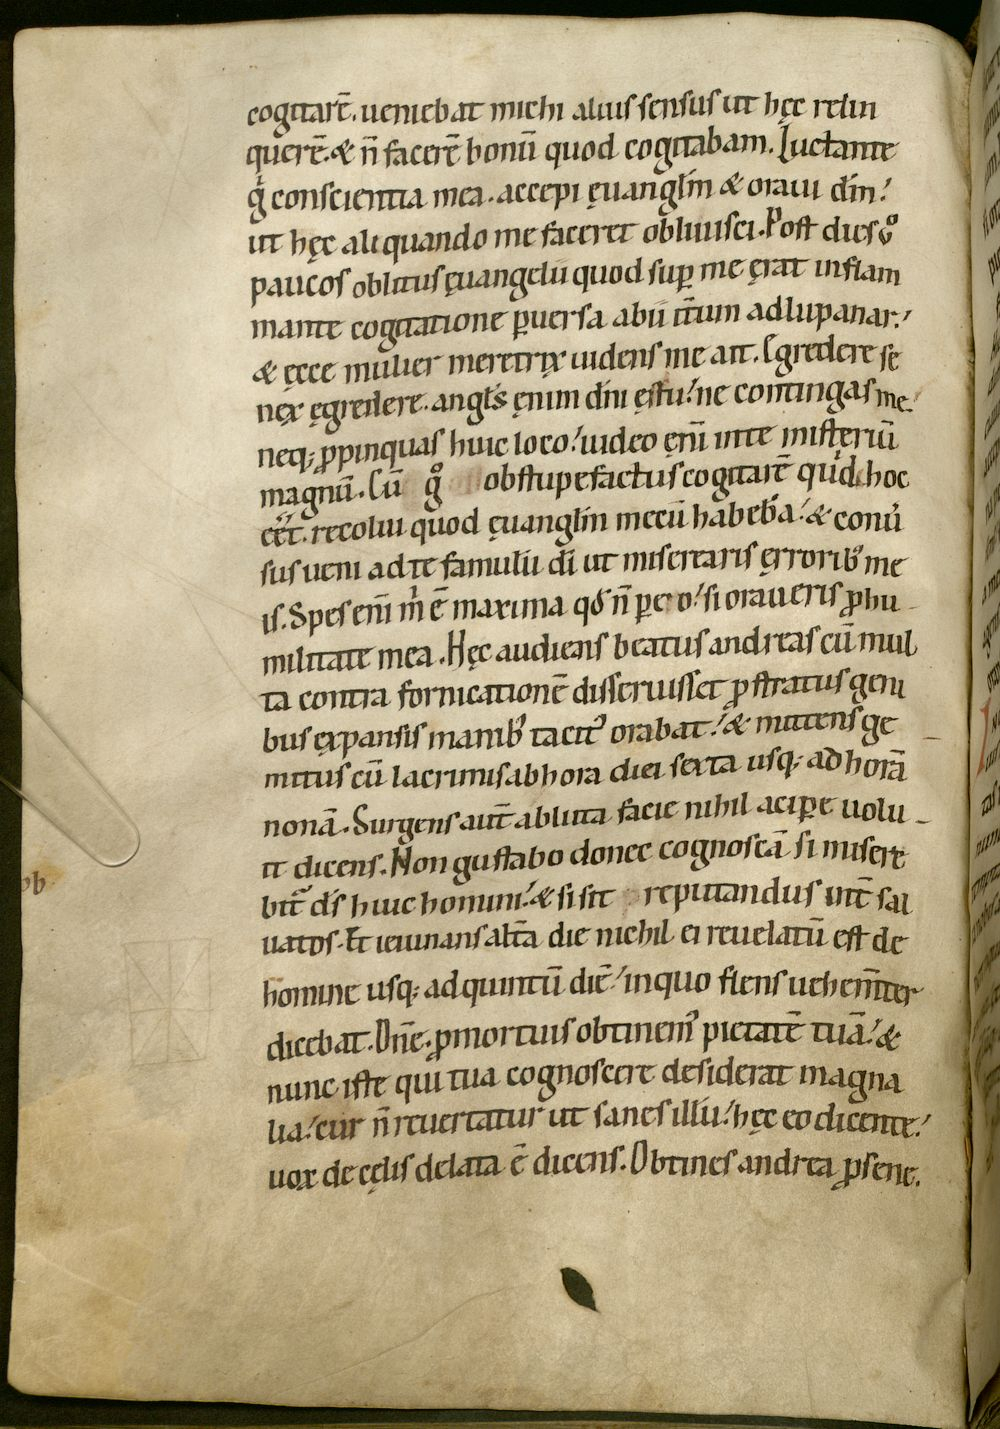 cogitarē. ueniebat michi alius sensus ut hęc relin
querē. & n̄ facerē bonū quod cogitabam. Luctante
g̊ conscientia mea. accepi ęuanglīm & oraui dn̄m!
ut hęc aliquando me faceret obliuisci. Post dies ů
paucos oblitus ęuangelii quod suꝑ me ęrat inflam
mante cogitatione ꝑuersa abii it̄um ad lupanar!
& ęcce mulier meretrix uidens me ait. Egredere se
nęx ęgredere. angl̄s ęnim dn̄i ęs tu! ne contingas me.
neq; ꝓpinquas huic loco! uideo ęni̅ in te misteriū
magnū. Cū g̊ obstupefactus cogitarē quid hoc
eēt. recolui quod ęuanglīm mecū habebā! & conu̓
sus ueni ad te famulū dī ut miserearis ęrrorib; me
is. Spes eni̅ m̓ ē maxima qđ n̄ pereo! si oraueris ꝓ hu
militate mea. Hęc audiens beatus andreas cū mul
ta contra fornicationē disseruisset ꝓstratus geni
bus ęxpansis manib; tacit᾿ orabat! & mittens ge
mitus cū lacrimis ab hora diei sexta usq; ad horā
nonā. Surgens aut̄ abluta facie nihil aciꝑe uolu
it dicens. Non gustabo donec cognoscā si misere
bit᾿ ds̄ huic homini! & si sit reputandus int̄ sal
uatos. Et ieiunans alt̄a die nichil ei reuelatū est de
homine usq; ad quintū diē! in quo flens uehem̄ter
dicebat. Dn̄e. ꝓ mortuis obtinem᾿ pietatē tuā! &
nunc iste qui tua cognoscere desiderat magna
lia! cur n̄ reuertatur ut sanes illū! hęc eo dicente!
uox de cęlis delata ē dicens. Obtines andrea ꝓ sene.